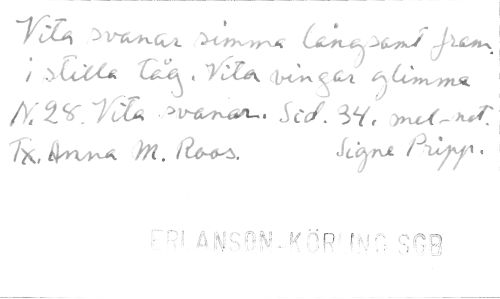 Vita svanar simma långsamt fram.
i stilla tåg. Vita vingar glimma
N. 28. Vita svanar. Sid. 34. mel-not.
Tx. Anna M. Roos. Signe Pripp.
ERLANSON-KÖRLING SGB